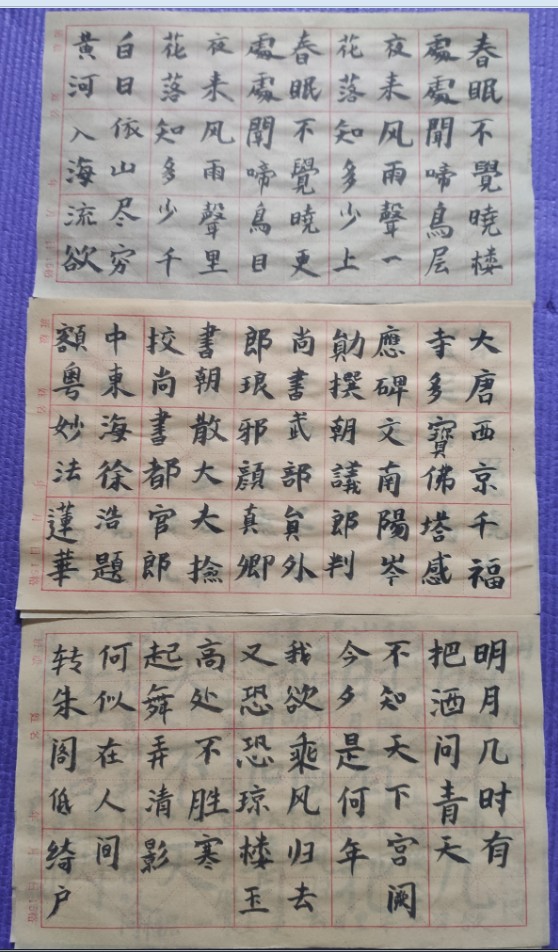 春眠不覺曉楼
處處聞啼鳥层
夜来风雨聲一
花落知多少上
春眠不覺曉更
處處聞啼鳥目
夜来风雨聲里
花落知多少千
白日依山尽穷
黄河入海流欲
大唐西京千福
寺多寳佛塔感
應碑文南陽岑
勛撰朝議郎判
尚書武部員外
郎琅邪顔真卿
書朝散大大撿
挍尚書都官郎
中東海徐浩題
額粤妙法蓮華
明月几时有
把酒问青天
不知天下宫阙
今夕是何年
我欲乘风归去
又恐恐琼楼玉
高处不胜寒
起舞弄清影
何似在人间
转朱阁低绮户